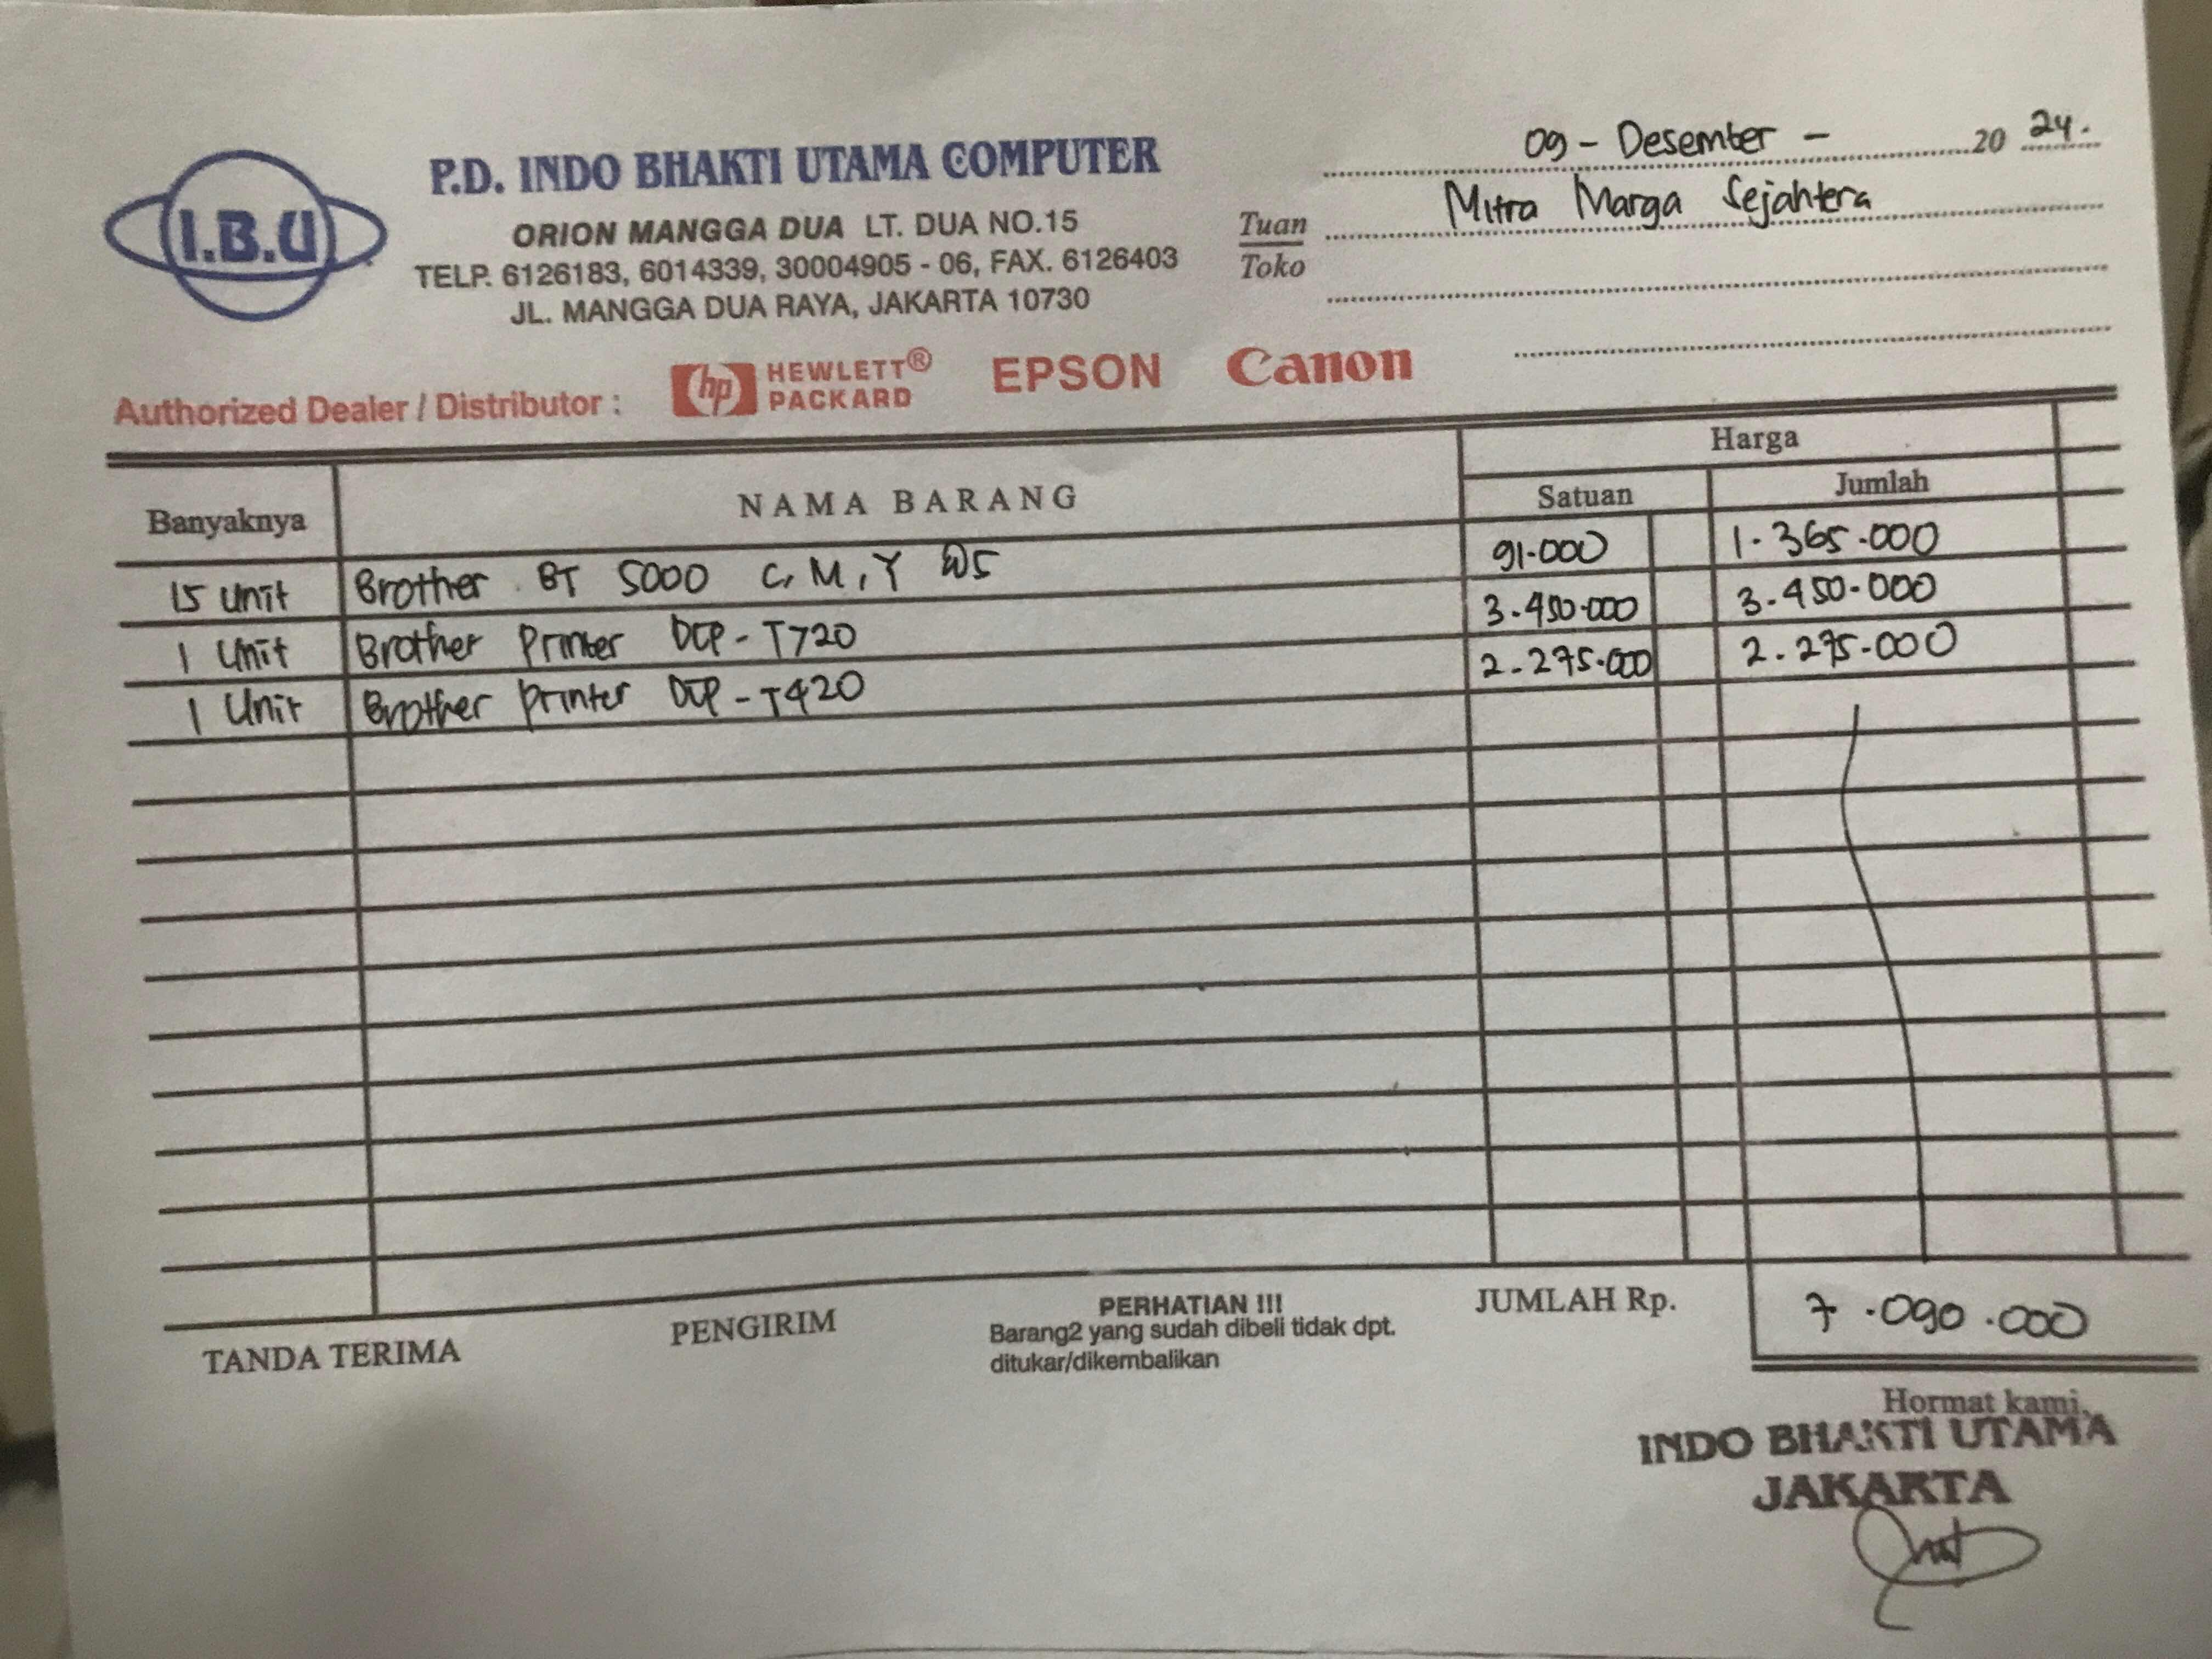 I.B.U
P.D. INDO BHAKTI UTAMA COMPUTER
ORION MANGGA DUA LT. DUA NO.15
TELP. 6126183, 6014339, 30004905 - 06, FAX. 6126403
JL. MANGGA DUA RAYA, JAKARTA 10730
09 - Desember - 20 24.
Tuan Mitra Marga Sejahtera
Toko
Authorized Dealer / Distributor : hp HEWLETT® PACKARD EPSON Canon
Banyaknya NAMA BARANG Harga
Satuan Jumlah
15 Unit Brother BT 5000 C, M, Y @5 91.000 1.365.000
1 Unit Brother Printer DCP - T720 3.450.000 3.450.000
1 Unit Brother Printer DCP - T420 2.275.000 2.275.000
TANDA TERIMA PENGIRIM PERHATIAN !!! JUMLAH Rp. 7.090.000
Barang2 yang sudah dibeli tidak dpt.
ditukar/dikembalikan
Hormat kami,
INDO BHAKTI UTAMA
JAKARTA